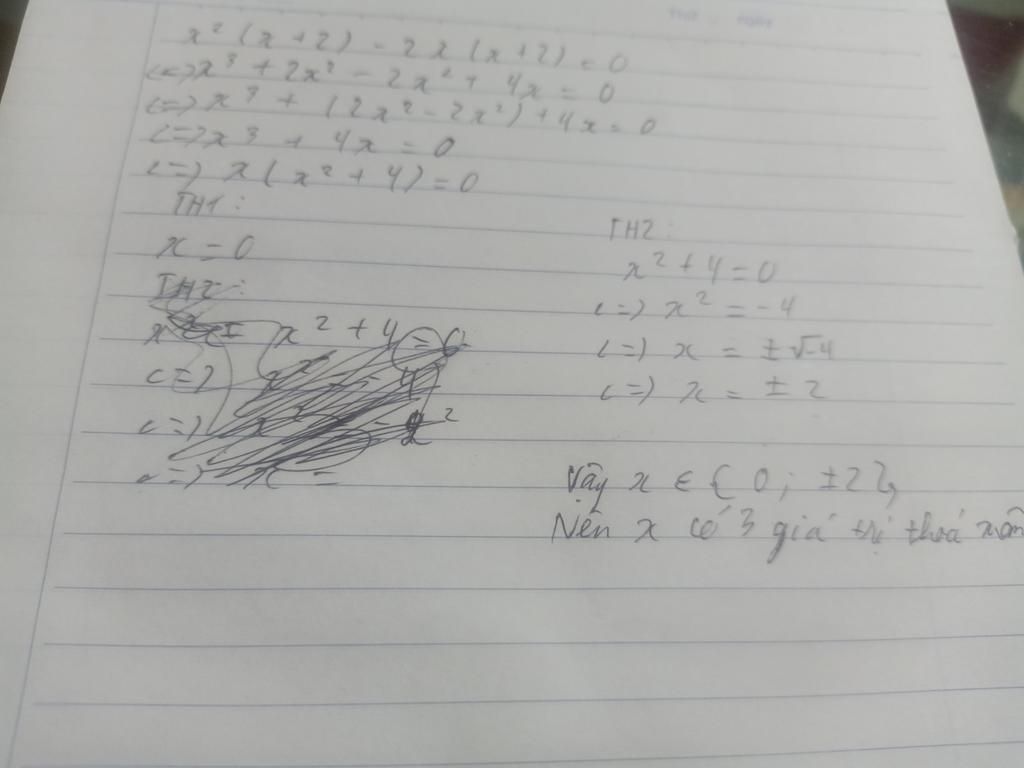 x² (x + 2) - 2x (x + 2) = 0
<=> x³ + 2x² - 2x² + 4x = 0
<=> x³ + (2x² - 2x²) + 4x = 0
<=> x³ + 4x = 0
<=> x (x² + 4) = 0
TH1:
x = 0
TH2:
x² + 4 = 0
<=>
<=>
<=> x =
TH2:
x² + 4 = 0
<=> x² = -4
<=> x = ±√-4
<=> x = ± 2
Vậy x ∈ { 0 ; ±2 },
Nên x có 3 giá trị thoả mãn